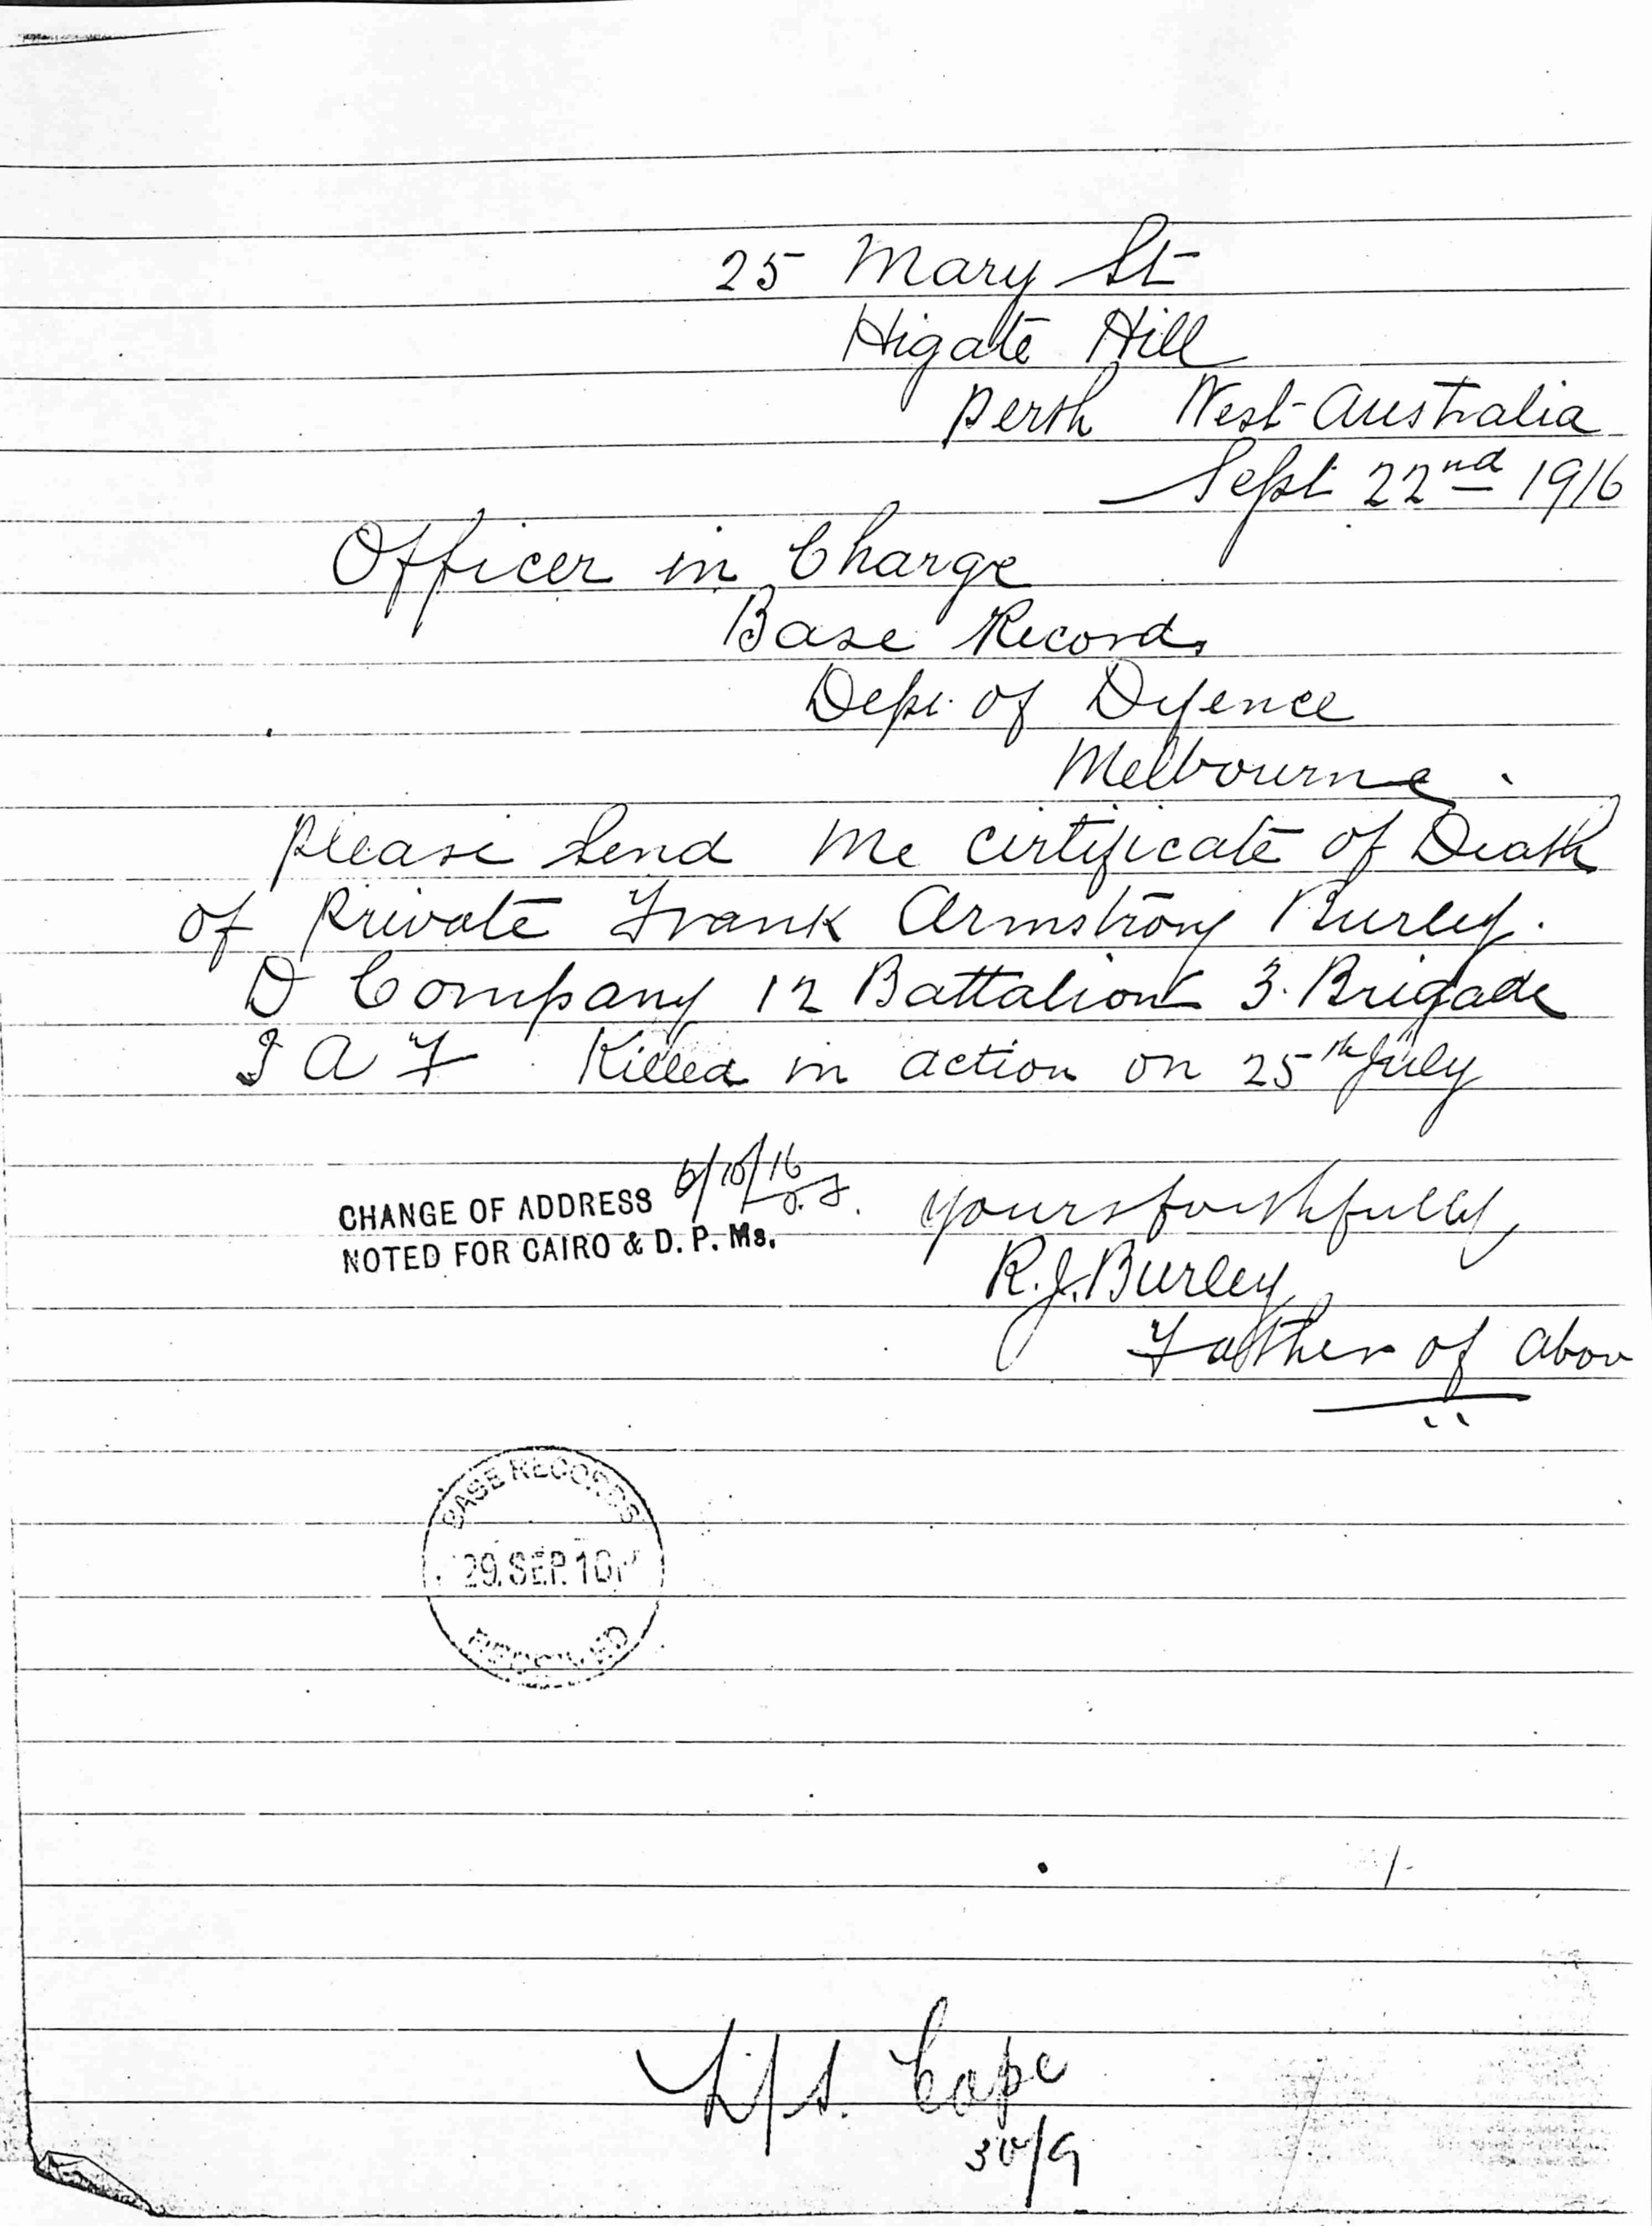 25 Mary St
Higate Hill
Perth West Australia
Sept 22nd 1916
Officer in Charge
Base Records
Dept. of Defence
Melbourne.
please send me certificate of Death
of Private Frank Armstrong Burley.
D Company 12 Battalion 3. Brigade
I A F Killed in action on 25th July
CHANGE OF ADDRESS 6/10/16
NOTED FOR CAIRO & D. P. Ms.
yours faithfully
R. J. Burley
Father of abov
BASE RECORDS
29. SEP. 16
RECEIVED
Cope
30/9